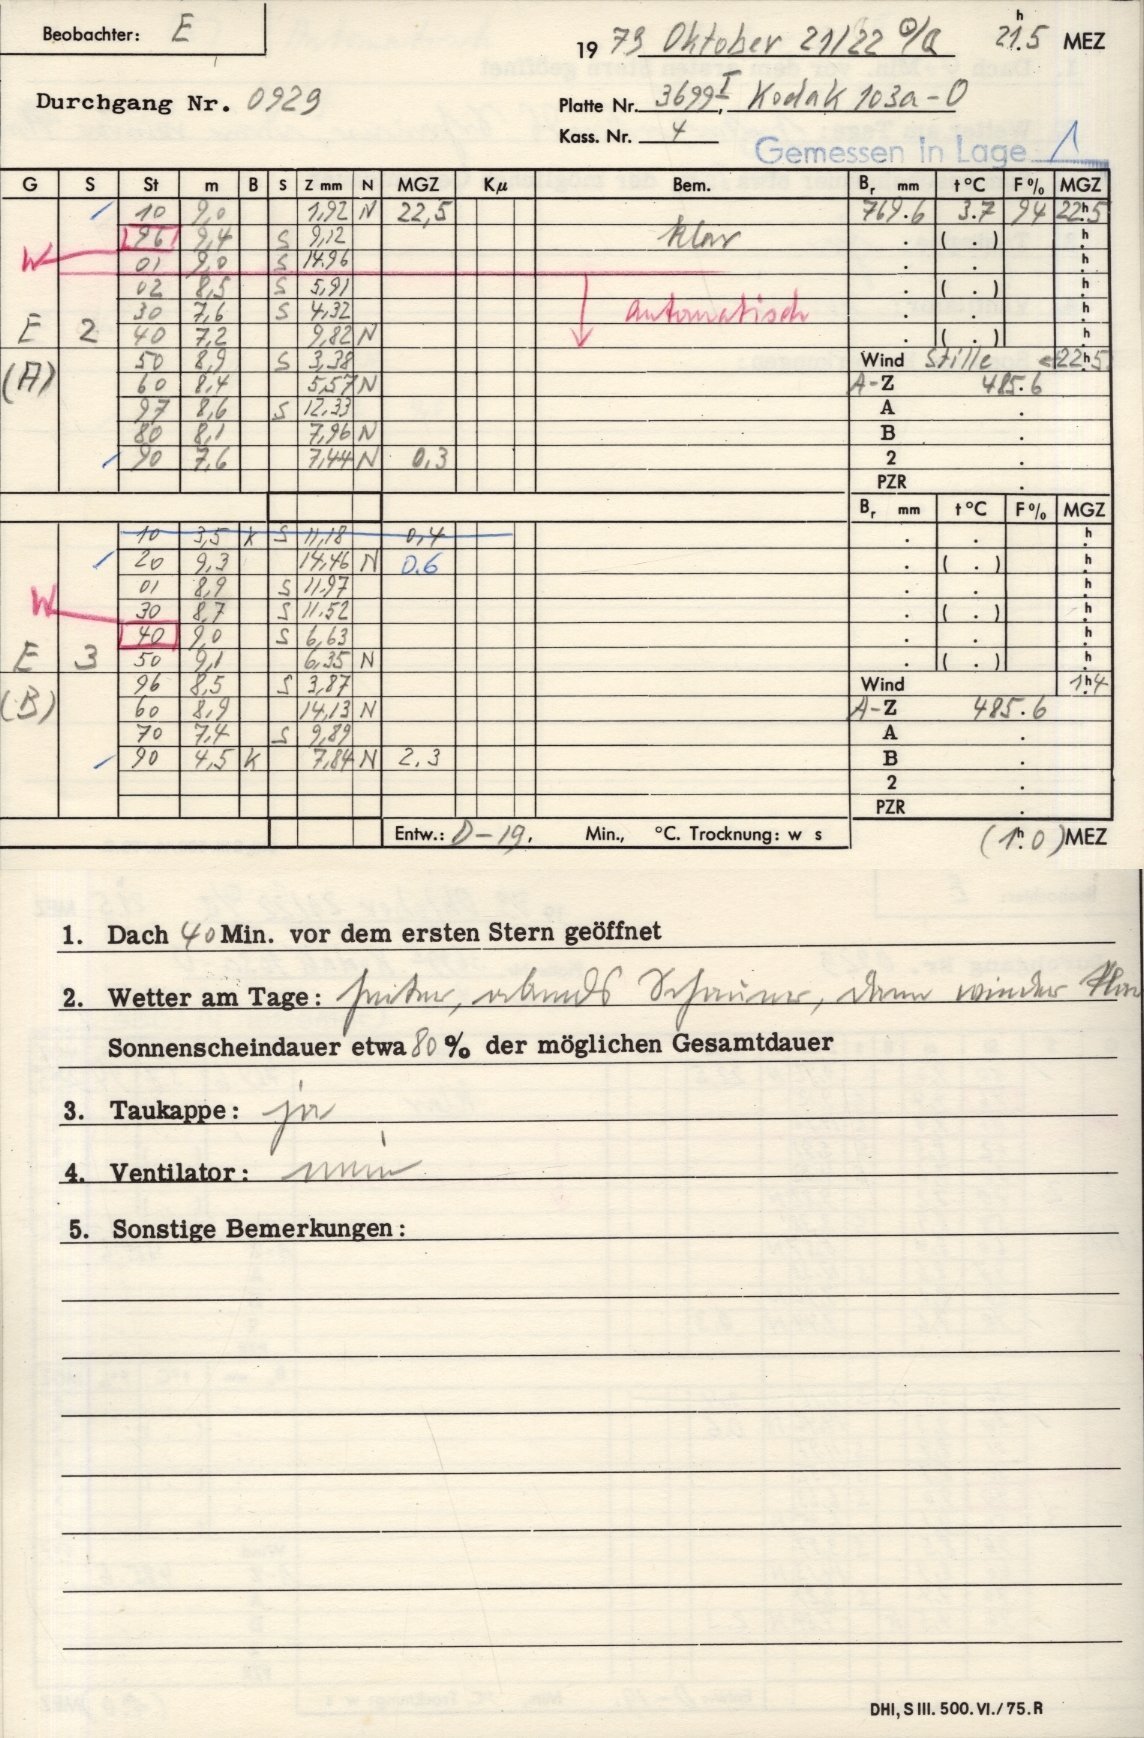 Beobachter: E
1979 Oktober 21/22 ☉/a 21h.5 MEZ
Durchgang Nr. 0929
Platte Nr. 3699 I, Kodak 103a-O
Kass. Nr. 4
Gemessen in Lage 1
G S St m B S Z mm N MGZ Kμ Bem. Br mm t°C F% MGZ
10 9,0 1,92 N 22,5 769.6 3.7 94 22h.5
96 9,4 S 9,12 klar . ( . ) h
W 01 9,0 S 14,96 . . h
02 8,5 S 5,91 . ( . ) h
30 7,6 S 4,32 automatisch . . h
E 2 40 7,2 9,82 N . ( . ) h
50 8,9 S 3,38 Wind Stille 22h.5
(A) 60 8,4 5,57 N A-Z 485.6
97 8,6 S 12,33 A .
80 8,1 7,96 N B .
90 7,6 7,44 N 0,3 2 .
PZR .
Br mm t°C F% MGZ
10 3,5 k S 11,18 0,4 . . h
20 9,3 14,46 N 0.6 . ( . ) h
01 8,9 S 11,97 . . h
W 30 8,7 S 11,52 . ( . ) h
40 9,0 S 6,63 . . h
E 3 50 9,1 6,35 N . ( . ) h
96 8,5 S 3,87 Wind 1h.4
(B) 60 8,9 14,13 N A-Z 485.6
70 7,4 S 9,89 A .
90 4,5 k 7,84 N 2,3 B .
2 .
PZR .
Entw.: D-19, Min., °C. Trocknung: w s (1h.0) MEZ
1. Dach 40 Min. vor dem ersten Stern geöffnet
2. Wetter am Tage: heiter, abends Schauer, dann wieder klar
Sonnenscheindauer etwa 80% der möglichen Gesamtdauer
3. Taukappe: ja
4. Ventilator: nein
5. Sonstige Bemerkungen:
DHI, S III. 500. VI./75. R